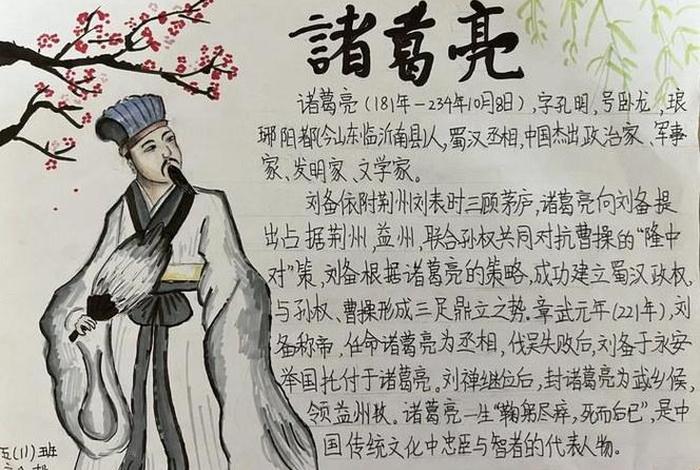 諸葛亮
诸葛亮(181年-234年10月8日),字孔明,号卧龙,琅
琊阳都(今山东临沂南县)人,蜀汉丞相,中国杰出政治家、军事
家、发明家、文学家。
刘备依附荆州刘表时三顾茅庐,诸葛亮向刘备提
出占据荆州,益州,联合孙权共同对抗曹操的“隆中
对”策,刘备根据诸葛亮的策略,成功建立蜀汉政权,
与孙权、曹操形成三足鼎立之势。章武元年(221年),刘
备称帝,任命诸葛亮为丞相,伐吴失败后,刘备于永安
举国托付于诸葛亮。刘禅继位后,封诸葛亮为武乡侯,
领益州牧。诸葛亮一生“鞠躬尽瘁,死而后已”,是中
国传统文化中忠臣与智者的代表人物。
五(11)班